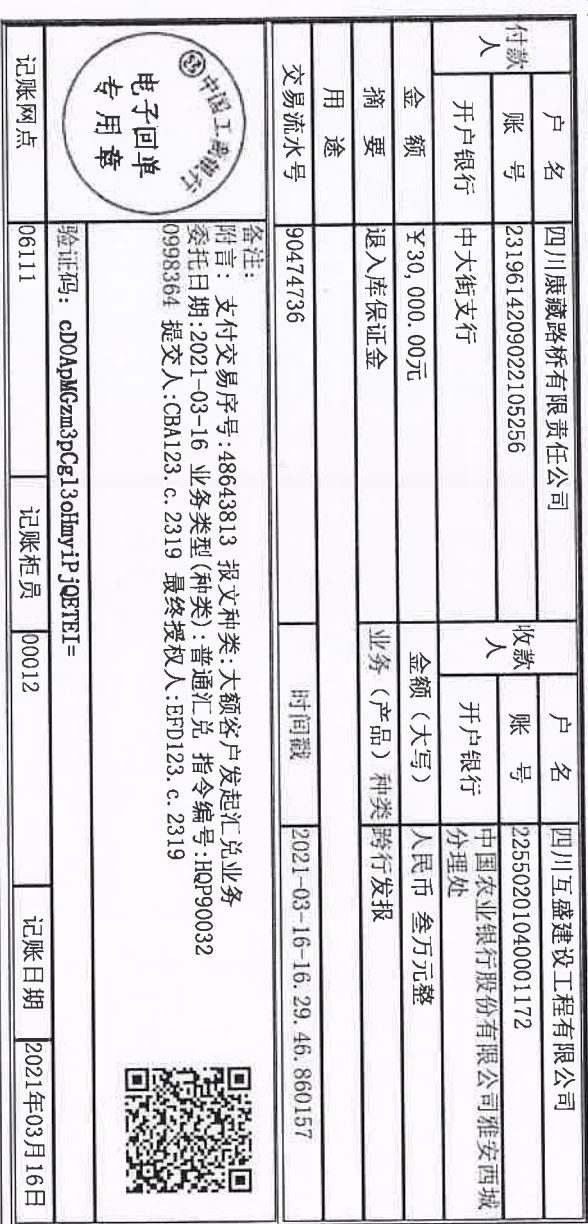 付款人 户 名 四川康藏路桥有限责任公司 收款人 户 名 四川互盛建设工程有限公司
账 号 2319614209022105256 账 号 22550201040001172
开户银行 中大街支行 开户银行 中国农业银行股份有限公司雅安西城
分理处
金 额 ¥30,000.00元 金额（大写） 人民币 叁万元整
摘 要 退入库保证金 业务（产品）种类 跨行发报
用 途
交易流水号 90474736 时间戳 2021-03-16-16.29.46.860157
中国工商银行
电子回单
专用章
备注：
附言： 支付交易序号:48643813 报文种类:大额客户发起汇兑业务
委托日期:2021-03-16 业务类型(种类):普通汇兑 指令编号:HQP90032
0998364 提交人:CBA123.c.2319 最终授权人:EFD123.c.2319
验证码: cD0ApMGzm3pCgl3oHmyiPjQETEI=
记账网点 06111 记账柜员 00012 记账日期 2021年03月16日